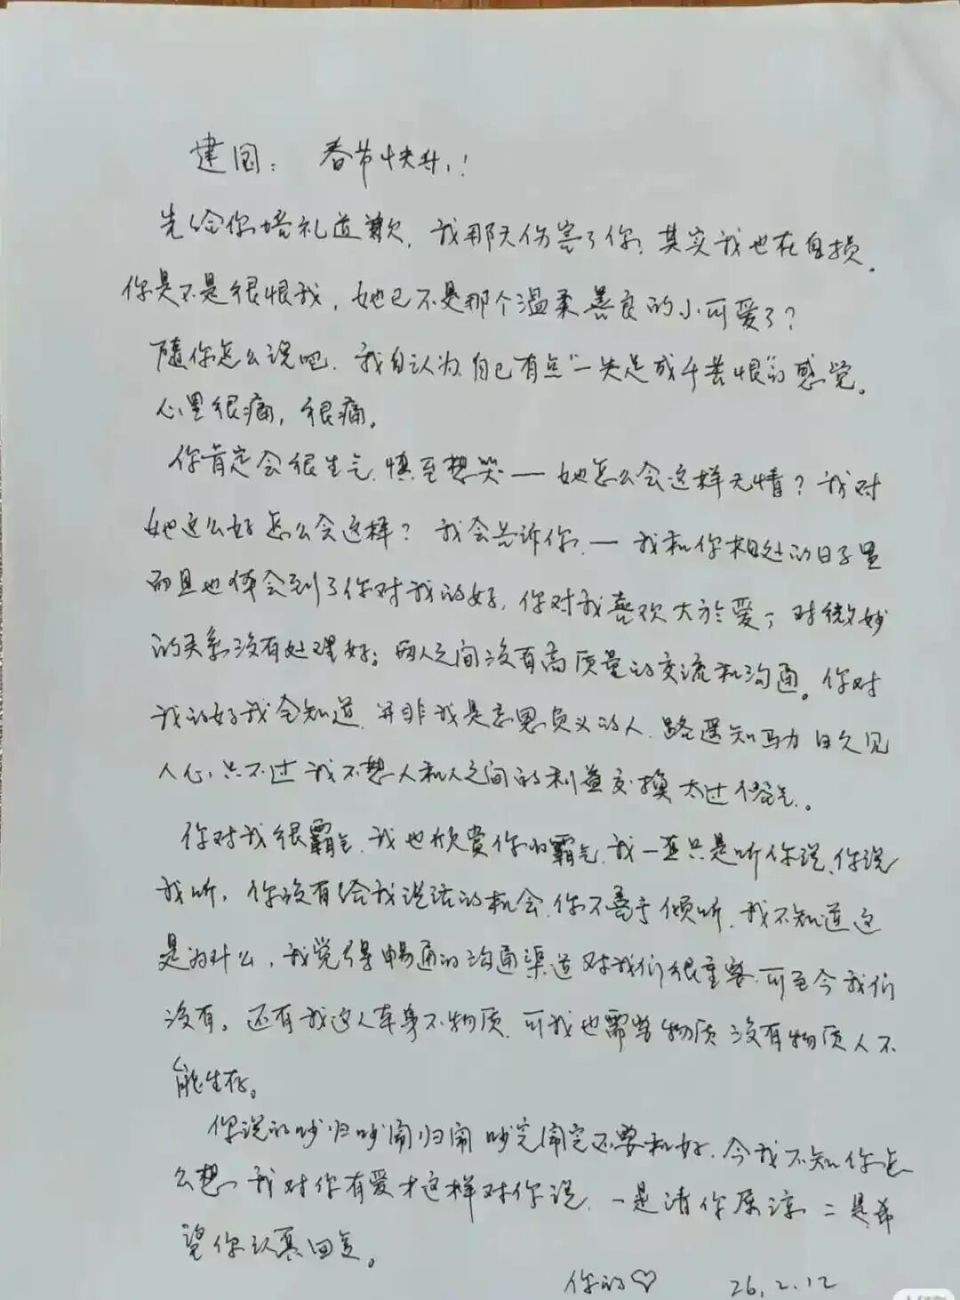 建国：春节快乐！
先给你培礼道歉，我那天伤害了你，其实我也在自损。
你是不是很恨我，她已不是那个温柔善良的小可爱了？
随你怎么说吧，我自认为自己有点“一失足成千苦恨”的感觉。
心里很痛，很痛。
你肯定会很生气，慎至想哭—她怎么会这样无情？我对
她这么好怎么会这样？我会告诉你，—我和你相处的日子里
而且也体会到了你对我的好，你对我喜欢大於爱；对微妙
的关系没有处理好；两人之间没有高质量的交流和沟通。你对
我的好我全知道，并非我是忘恩负义的人，路遥知马力日久见
人心，只不过我不想人和人之间的利益交换太过俗气。
你对我很霸气，我也欣赏你的霸气，我一直只是听你说，你说
我听，你没有给我说话的机会，你不善于倾听，我不知道这
是为什么，我觉得畅通的沟通渠道对我们很重要，可至今我们
没有。还有我这人本身不物质，可我也需要物质没有物质人不
能生存。
你说的吵归吵闹归闹吵完闹完还要和好，今我不知你怎
么想，我对你有爱才这样对你说，一是请你原谅，二是希
望你认真回复。
你的♡ 26.2.12